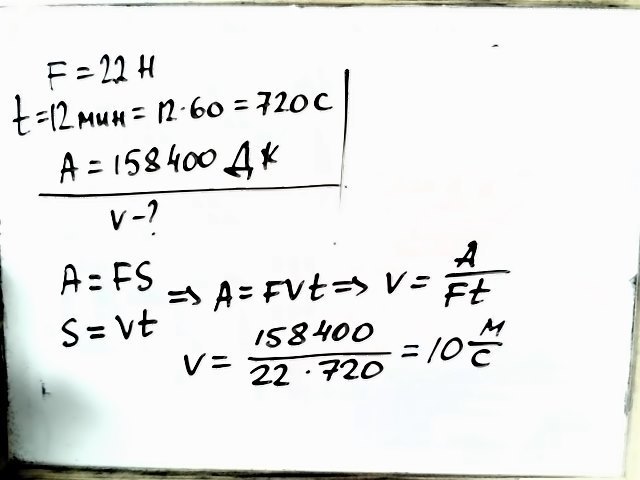 F = 22 Н
t = 12 мин = 12 · 60 = 720 с
A = 158400 Дж
v - ?
A = FS
S = Vt
⇒ A = FVt ⇒ V = A/Ft
V = 158400/22 · 720 = 10 м/с